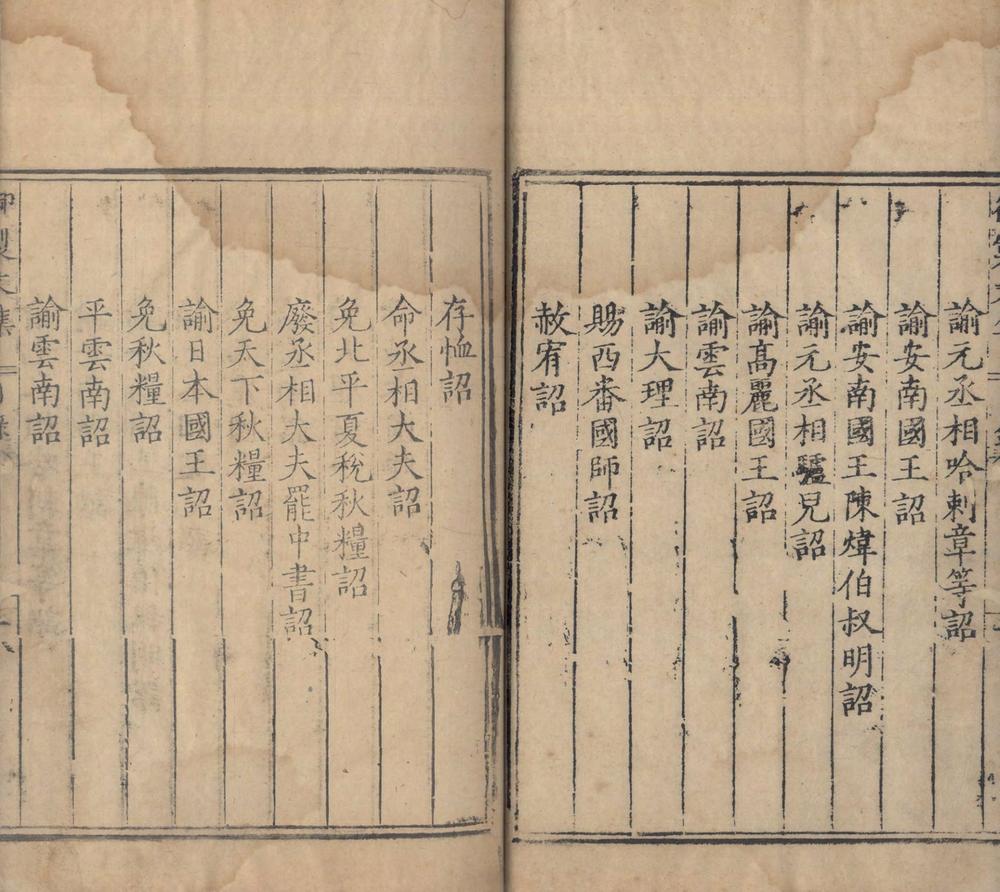 諭元丞相哈剌章等詔
諭安南國王詔
諭安南國王陳煒伯叔明詔
諭元丞相驢兒詔
諭高麗國王詔
諭雲南詔
諭大理詔
賜西番國師詔
赦宥詔
存恤詔
命丞相大夫詔
免北平夏稅秋糧詔
廢丞相大夫罷中書詔
免天下秋糧詔
諭日本國王詔
免秋糧詔
平雲南詔
諭雲南詔
御製文集 目錄